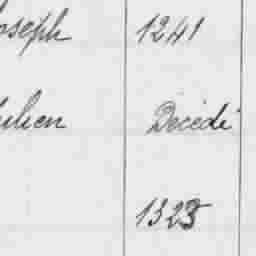 oseph 1241
ulien Décédé
1323